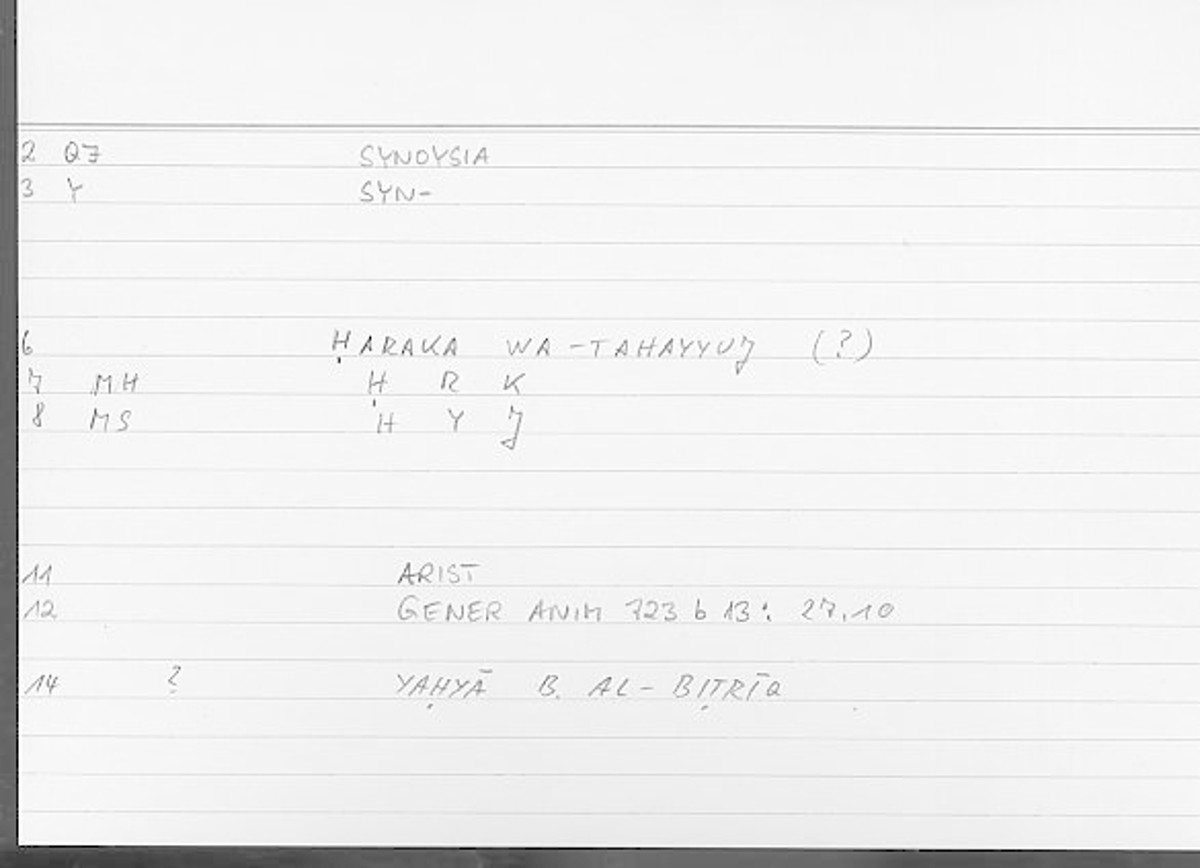 2 QJ SYNOYSIA
3 Y SYN-
6 ḤARAKA WA-TAHAYYUJ (?)
7 MH Ḥ R K
8 MS H Y J
11 ARIST
12 GENER ANIM 723 b 13: 27,10
14 ? YAḤYĀ B. AL-BIṬRĪQ